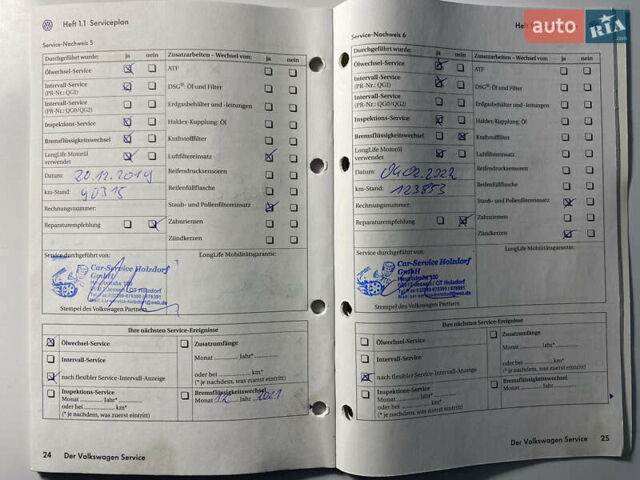 Heft 1.1 Serviceplan
Service-Nachweis 5
Durchgeführt wurde: ja nein
Ölwechsel-Service
Intervall-Service
(PR-Nr.: QG1)
Intervall-Service
(PR-Nr.: QG0/QG2)
Inspektions-Service
Bremsflüssigkeitswechsel
LongLife Motoröl
verwendet
Datum: 20.12.2019
km-Stand: 90315
Rechnungsnummer:
Reparaturempfehlung
Zusatzarbeiten – Wechsel von: ja nein
ATF
DSG®: Öl und Filter
Erdgasbehälter und -leitungen
Haldex-Kupplung: Öl
Kraftstofffilter
Luftfiltereinsatz
Reifendrucksensoren
Reifenfüllflasche
Staub- und Pollenfiltereinsatz
Zahnriemen
Zündkerzen
Service durchgeführt von:
LongLife Mobilitätsgarantie:
Car-Service Holzdorf
GmbH
Stempel des Volkswagen Partners
Ihre nächsten Service-Ereignisse
Ölwechsel-Service
Intervall-Service
nach flexibler Service-Intervall-Anzeige
Inspektions-Service
Monat Jahr*
oder bei km*
(* je nachdem, was zuerst eintritt)
Zusatzumfänge
Monat Jahr*
oder bei km*
(* je nachdem, was zuerst eintritt)
Bremsflüssigkeitswechsel
Monat 12 Jahr 2021
24 Der Volkswagen Service
Heft
auto RIA
.com
Service-Nachweis 6
Durchgeführt wurde: ja nein
Ölwechsel-Service
Intervall-Service
(PR-Nr.: QG1)
Intervall-Service
(PR-Nr.: QG0/QG2)
Inspektions-Service
Bremsflüssigkeitswechsel
LongLife Motoröl
verwendet
Datum: 04.02.2022
km-Stand: 123853
Rechnungsnummer:
Reparaturempfehlung
Zusatzarbeiten – Wechsel von: ja nein
ATF
DSG®: Öl und Filter
Erdgasbehälter und -leitungen
Haldex-Kupplung: Öl
Kraftstofffilter
Luftfiltereinsatz
Reifendrucksensoren
Reifenfüllflasche
Staub- und Pollenfiltereinsatz
Zahnriemen
Zündkerzen
Service durchgeführt von:
LongLife Mobilitätsgarantie:
Car-Service Holzdorf
GmbH
Stempel des Volkswagen Partners
Ihre nächsten Service-Ereignisse
Ölwechsel-Service
Intervall-Service
nach flexibler Service-Intervall-Anzeige
Inspektions-Service
Monat Jahr*
oder bei km*
(* je nachdem, was zuerst eintritt)
Zusatzumfänge
Monat Jahr*
oder bei km*
(* je nachdem, was zuerst eintritt)
Bremsflüssigkeitswechsel
Monat Jahr
Der Volkswagen Service 25